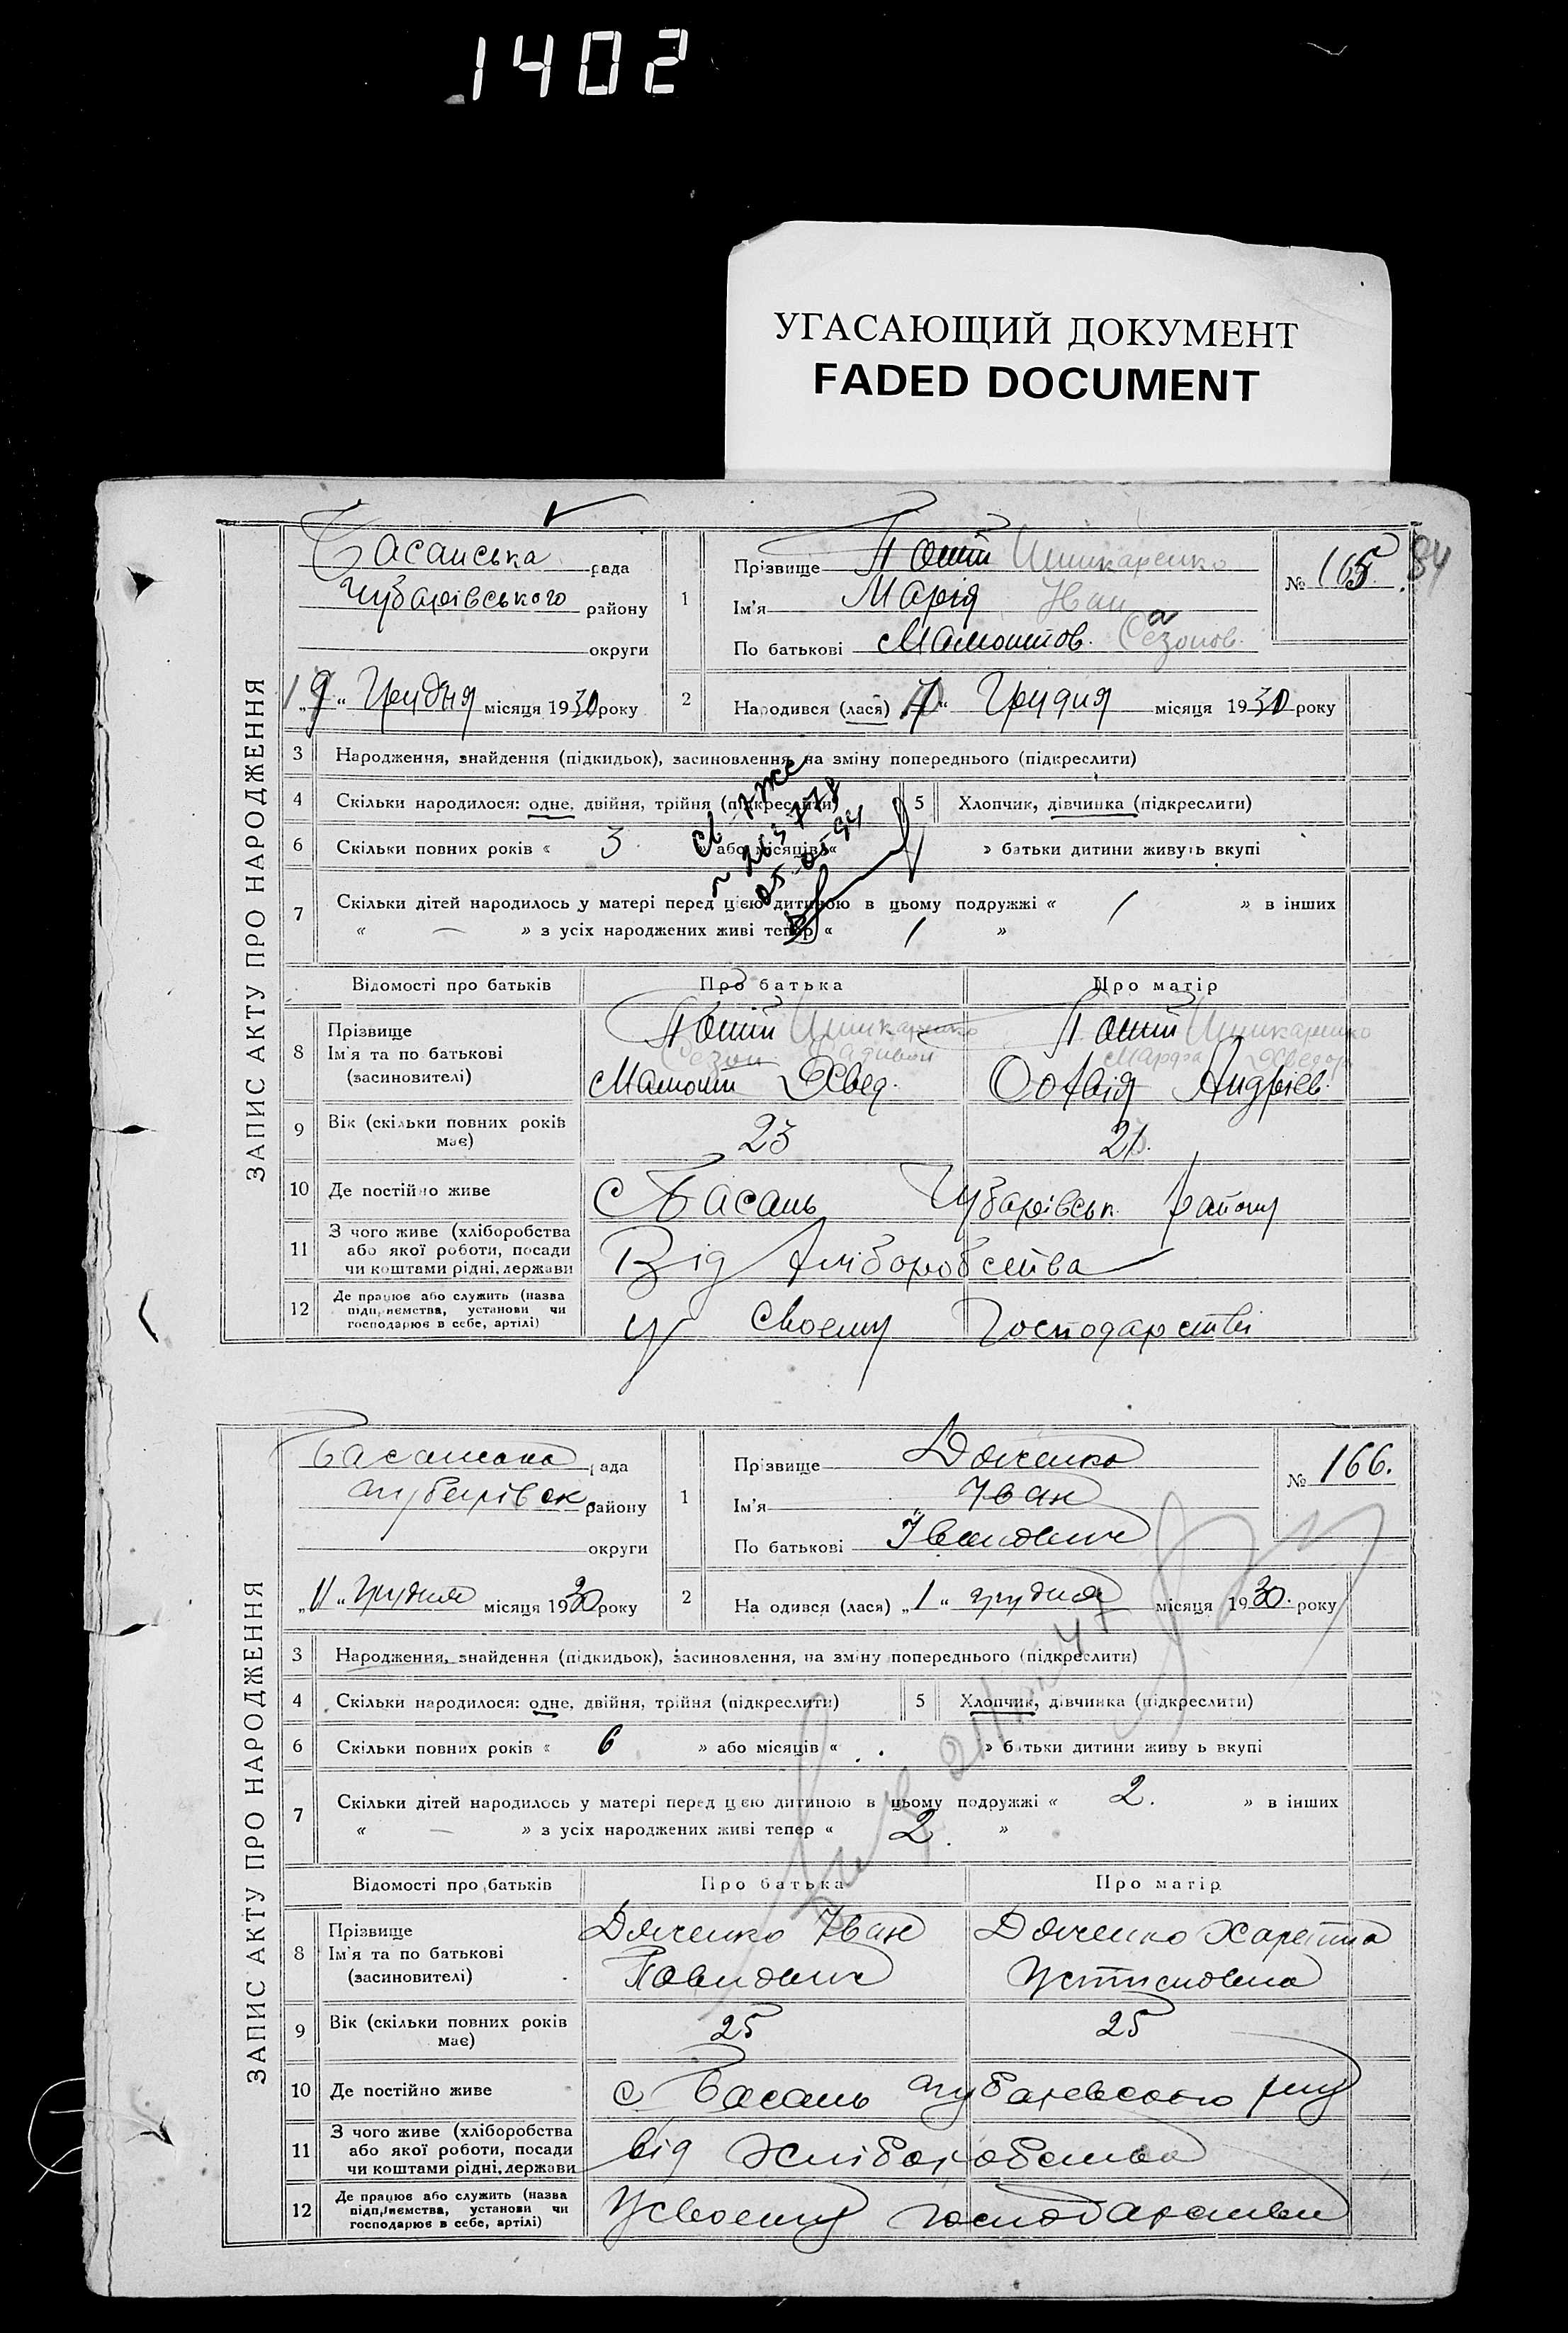 1402
УГАСАЮЩИЙ ДОКУМЕНТ
FADED DOCUMENT
84
ЗАПИС АКТУ ПРО НАРОДЖЕННЯ
Басанська рада
Чубарівського району
округи
„19“ Грудня місяця 1930 року
1
Прізвище Шишкаренко
Ім'я Марія Іван
По батькові Мамонтов. Сазонов.
№ 165.
2 Народився (лася) Грудня місяця 1930 року
3 Народження, знайдення (підкидьок), засиновлення, на зміну попереднього (підкреслити)
4 Скільки народилося: одне, двійня, трійня (підкреслити) 5 Хлопчик, дівчинка (підкреслити)
6 Скільки повних років « 3 » або місяців « » батьки дитини живуть вкупі
7 Скільки дітей народилось у матері перед цією дитиною в цьому подружжі « 1 » в інших
« — » з усіх народжених живі тепер « 1 »
05-05-94
Відомості про батьків Про батька Про матір
8 Прізвище
Ім'я та по батькові
(засновителі)
Шишкаренко Шишкаренко
Сезон Марфа Хведор
Мамонт Хвед. Андріев.
9 Вік (скільки повних років має) 23 21.
10 Де постійно живе с Басань Чубарівськ району
11 З чого живе (хліборобства або якої роботи, посади чи коштами рідні, держави Від Хліборобства
12 Де працює або служить (назва підприємства, установи чи господарює в себе, артілі) у своему Господарстві
ЗАПИС АКТУ ПРО НАРОДЖЕННЯ
Басанська рада
Чубарівськ району
округи
„11“ грудня місяця 1930 року
1
Прізвище Дяченко
Ім'я Іван
По батькові Іванович
№ 166.
2 Народився (лася) „1“ грудня місяця 1930. року
3 Народження, знайдення (підкидьок), засиновлення, на зміну попереднього (підкреслити)
4 Скільки народилося: одне, двійня, трійня (підкреслити) 5 Хлопчик, дівчинка (підкреслити)
6 Скільки повних років « 6 » або місяців « » батьки дитини живуть вкупі
7 Скільки дітей народилось у матері перед цією дитиною в цьому подружжі « 2. » в інших
« — » з усіх народжених живі тепер « 2. »
Відомості про батьків Про батька Про матір
8 Прізвище
Ім'я та по батькові
(засиновителі)
Дяченко Іван Дяченко Харетина
Павлович Устиновна
9 Вік (скільки повних років має) 25 25
10 Де постійно живе с Басань Чубаревського рну
11 З чого живе (хліборобства або якої роботи, посади чи коштами рідні, держави від Хліборобства
12 Де працює або служить (назва підприємства, установи чи господарює в себе, артілі) У своему господарстві